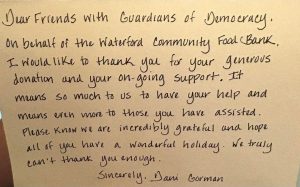 Dear Friends with Guardians of Democracy,
On behalf of the Waterford Community Food Bank,
I would like to thank you for your generous
donation and your on-going support. It
means so much to us to have your help and
means even more to those you have assisted.
Please know we are incredibly grateful and hope
all of you have a wonderful holiday. We truly
can't thank you enough.
Sincerely, Dani Gorman